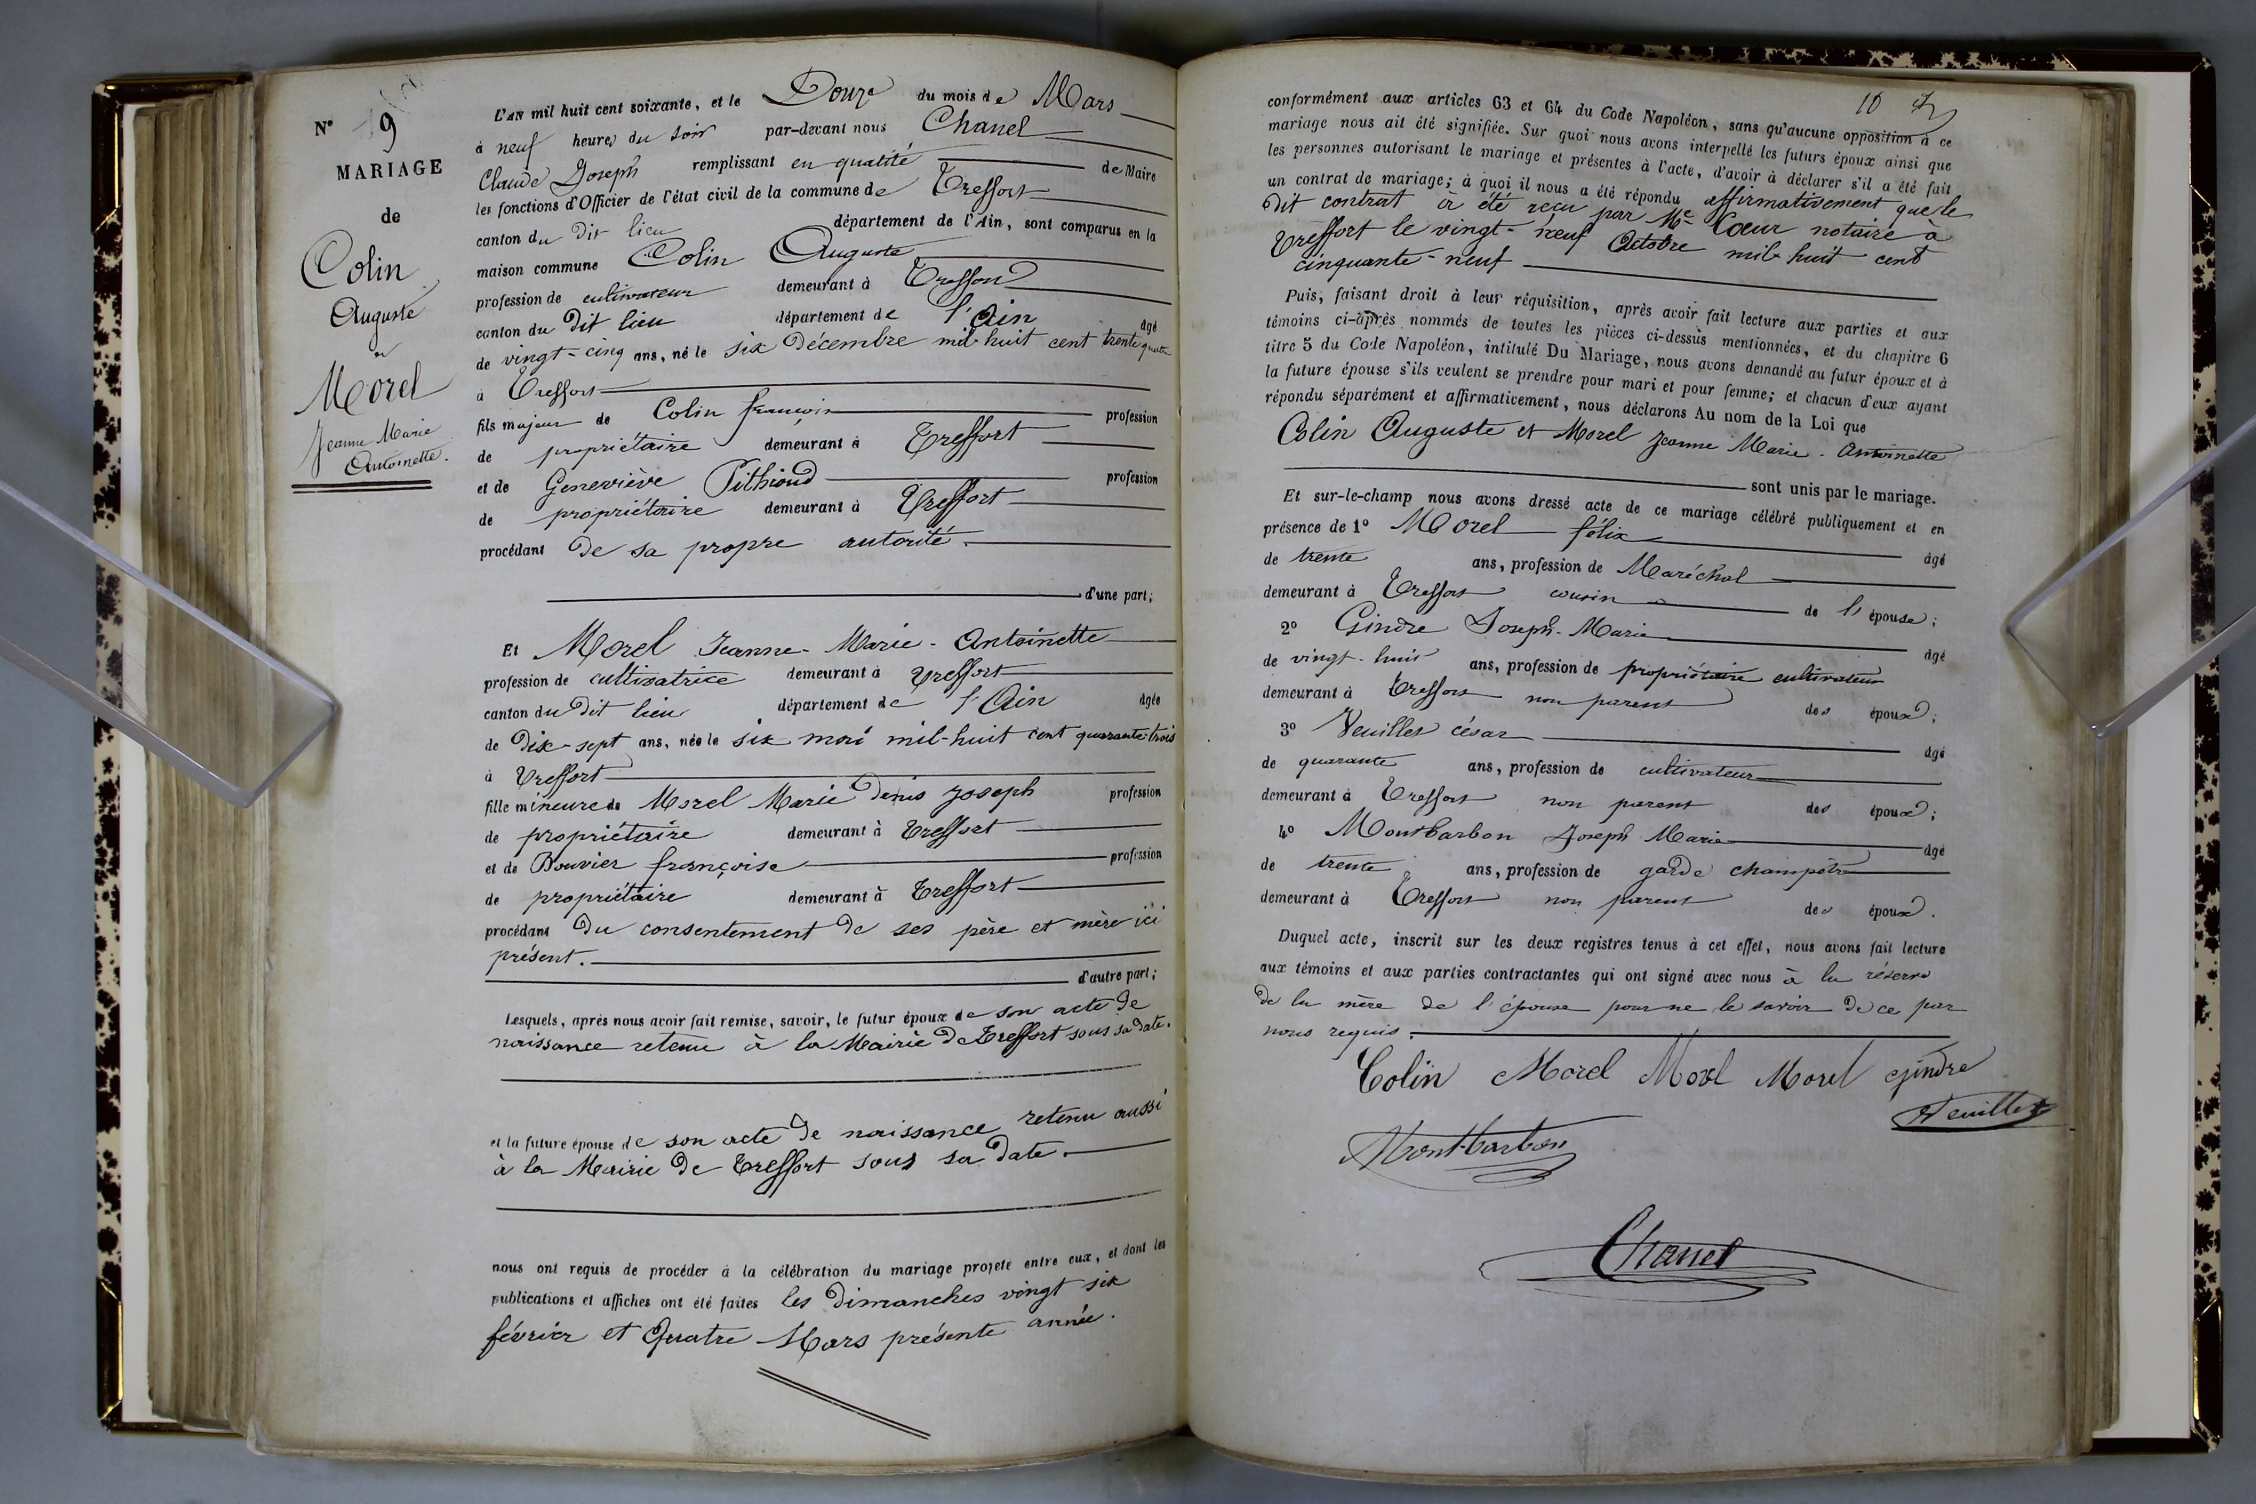 N° 9
MARIAGE
de
Colin
Auguste
et
Morel
Jeanne Marie
Antoinette.
L'AN mil huit cent soixante, et le Douze du mois de Mars
à neuf heures du soir par-devant nous Chanel
Claude Joseph remplissant en qualité de Maire
les fonctions d'Officier de l'état civil de la commune de Treffort
canton du dit lieu département de l'Ain, sont comparus en la
maison commune Colin Auguste
profession de cultivateur demeurant à Treffort
canton du dit lieu département de l'Ain âgé
de vingt-cinq ans, né le six décembre mil huit cent trente quatre
à Treffort
fils majeur de Colin françois profession
de propriétaire demeurant à Treffort
et de Geneviève Pithioud profession
de propriétaire demeurant à Treffort
procédant de sa propre autorité.
d'une part;
Et Morel Jeanne-Marie-Antoinette
profession de cultivatrice demeurant à Treffort
canton du dit lieu département de l'Ain âgée
de dix-sept ans, née le six mai mil-huit cent quarante-trois
à Treffort
fille mineure de Morel Marie denis Joseph profession
de propriétaire demeurant à Treffort
et de Bouvier françoise profession
de propriétaire demeurant à Treffort
procédant du consentement de ses père et mère ici
présent.
d'autre part;
Lesquels, après nous avoir fait remise, savoir, le futur époux de son acte de
naissance retenu à la Mairie de Treffort sous sa date.
et la future épouse de son acte de naissance retenu aussi
à la Mairie de Treffort sous sa date.
nous ont requis de procéder à la célébration du mariage projeté entre eux, et dont les
publications et affiches ont été faites les dimanches vingt six
février et Quatre Mars présente année.
10
conformément aux articles 63 et 64 du Code Napoléon, sans qu'aucune opposition à ce
mariage nous ait été signifiée. Sur quoi nous avons interpellé les futurs époux ainsi que
les personnes autorisant le mariage et présentes à l'acte, d'avoir à déclarer s'il a été fait
un contrat de mariage; à quoi il nous a été répondu affirmativement que le
dit contrat à été reçu par Me Cœur notaire à
Treffort le vingt-neuf Octobre mil huit cent
cinquante-neuf
Puis, faisant droit à leur réquisition, après avoir fait lecture aux parties et aux
témoins ci-après nommés de toutes les pièces ci-dessus mentionnées, et du chapitre 6
titre 5 du Code Napoléon, intitulé Du Mariage, nous avons demandé au futur époux et à
la future épouse s'ils veulent se prendre pour mari et pour femme; et chacun d'eux ayant
répondu séparément et affirmativement, nous déclarons Au nom de la Loi que
Colin Auguste et Morel Jeanne Marie-Antoinette
sont unis par le mariage.
Et sur-le-champ nous avons dressé acte de ce mariage célébré publiquement et en
présence de 1° Morel félix âgé
de trente ans, profession de Maréchal
demeurant à Treffort cousin de l'épouse;
2° Gindre Joseph-Marie âgé
de vingt-huit ans, profession de propriétaire cultivateur
demeurant à Treffort non parent des époux;
3° Veuillet césar âgé
de quarante ans, profession de cultivateur
demeurant à Treffort non parent des époux;
4° Montbarbon Joseph Marie âgé
de trente ans, profession de garde champêtre
demeurant à Treffort non parent des époux.
Duquel acte, inscrit sur les deux registres tenus à cet effet, nous avons fait lecture
aux témoins et aux parties contractantes qui ont signé avec nous à la réserve
de la mère de l'épouse pour ne le savoir de ce par
nous requis.
Colin Morel Morel Morel gindre
Veuillet
Montbarbon
Chanel